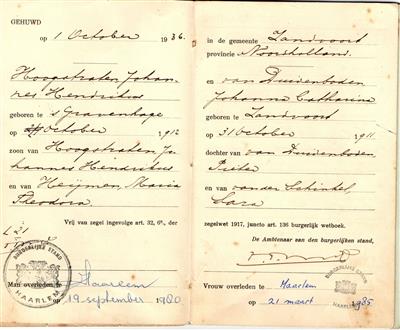 GEHUWD
op 1 October 1936.
Hoogstraten, Johan-
nes Hendrikus
geboren te 's Gravenhage
op October 1912
zoon van Hoogstraten, Jo-
hannes Hendrikus
en van Heijmen, Maria
Theodora.
Vrij van zegel ingevolge art. 32, 6°, der
BURGERLIJKE STAND
HAARLEM
Man overleden te Haarlem
op 19 september 1980
in de gemeente Zandvoort
provincie Noordholland.
en van Duidenboden
Johanna Catharina
geboren te Zandvoort
op 31 October 1911
dochter van van Duidenboden,
Pieter
en van van der Schinkel,
Sara
zegelwet 1917, juncto art. 136 burgerlijk wetboek.
De Ambtenaar van den burgerlijken stand,
BURGERLIJKE STAND
HAARLEM
Vrouw overleden te Haarlem
op 21 maart 1985